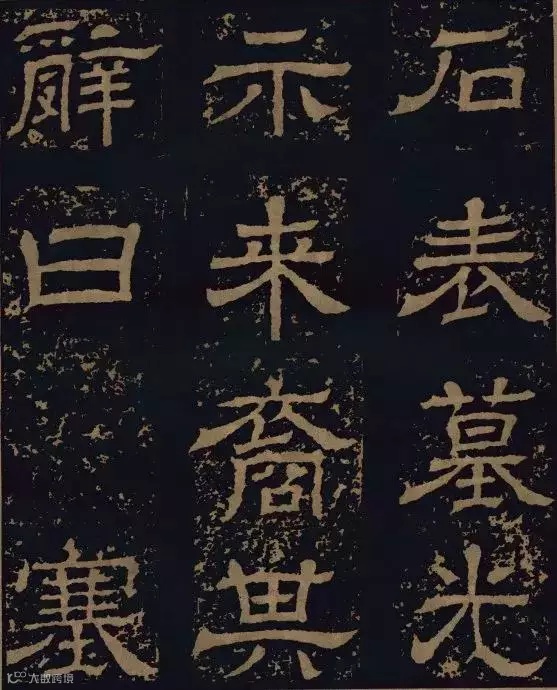 石表墓光
示来裔其
辭曰塞
大数跨境